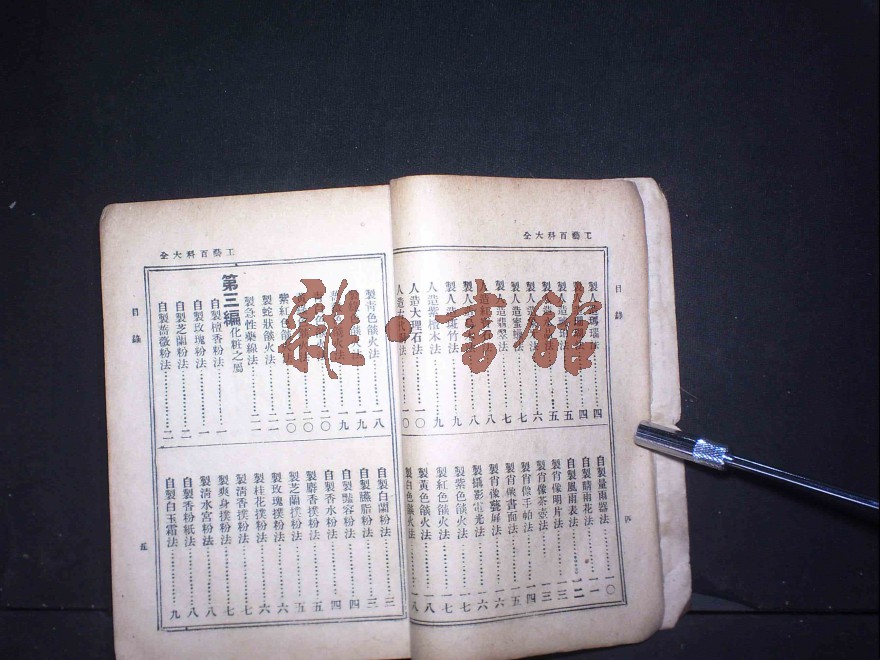 工藝百科大全
目錄
製人造瑪瑙法 四
五
製人造 法 五
製人造 法 六
製人造蜜蠟法 七
製人造翡翠法 七
人造紅 八
製人造斑竹法 九
人造紫檀木法 九
人造大理石法 一〇
一〇
自製量雨器法 一〇
自製晴雨花法 一一
自製風雨表法 一二
製肖像明片法 一三
製肖像茶壺法 一三
製肖像手帕法 一四
製肖像書面法 一五
製肖像甕屏法 一六
製攝影電光法 一六
製紫色燄火法 一七
製紅色燄火法 一七
製黃色燄火法 一八
製白色燄火法 一八
四
工藝百科大全
目錄
製青色燄火法 一八
一九
一九
二〇
二〇
紫紅色燄 二〇
製蛇狀燄火法 二一
製急性藥線法 二一
第三編 化粧之屬
自製檀香粉法 一
自製玫瑰粉法 一
自製芝蘭粉法 二
自製薔薇粉法 二
自製白蘭粉法 三
自製臙脂粉法 三
自製豔容粉法 四
自製香水粉法 四
製麝香撲粉法 五
製芝蘭撲粉法 五
製玫瑰撲粉法 六
製桂花撲粉法 六
製清香撲粉法 七
製爽身撲粉法 七
製清水宮粉法 八
自製香粉紙法 八
自製白玉霜法 九
五
雜·書館